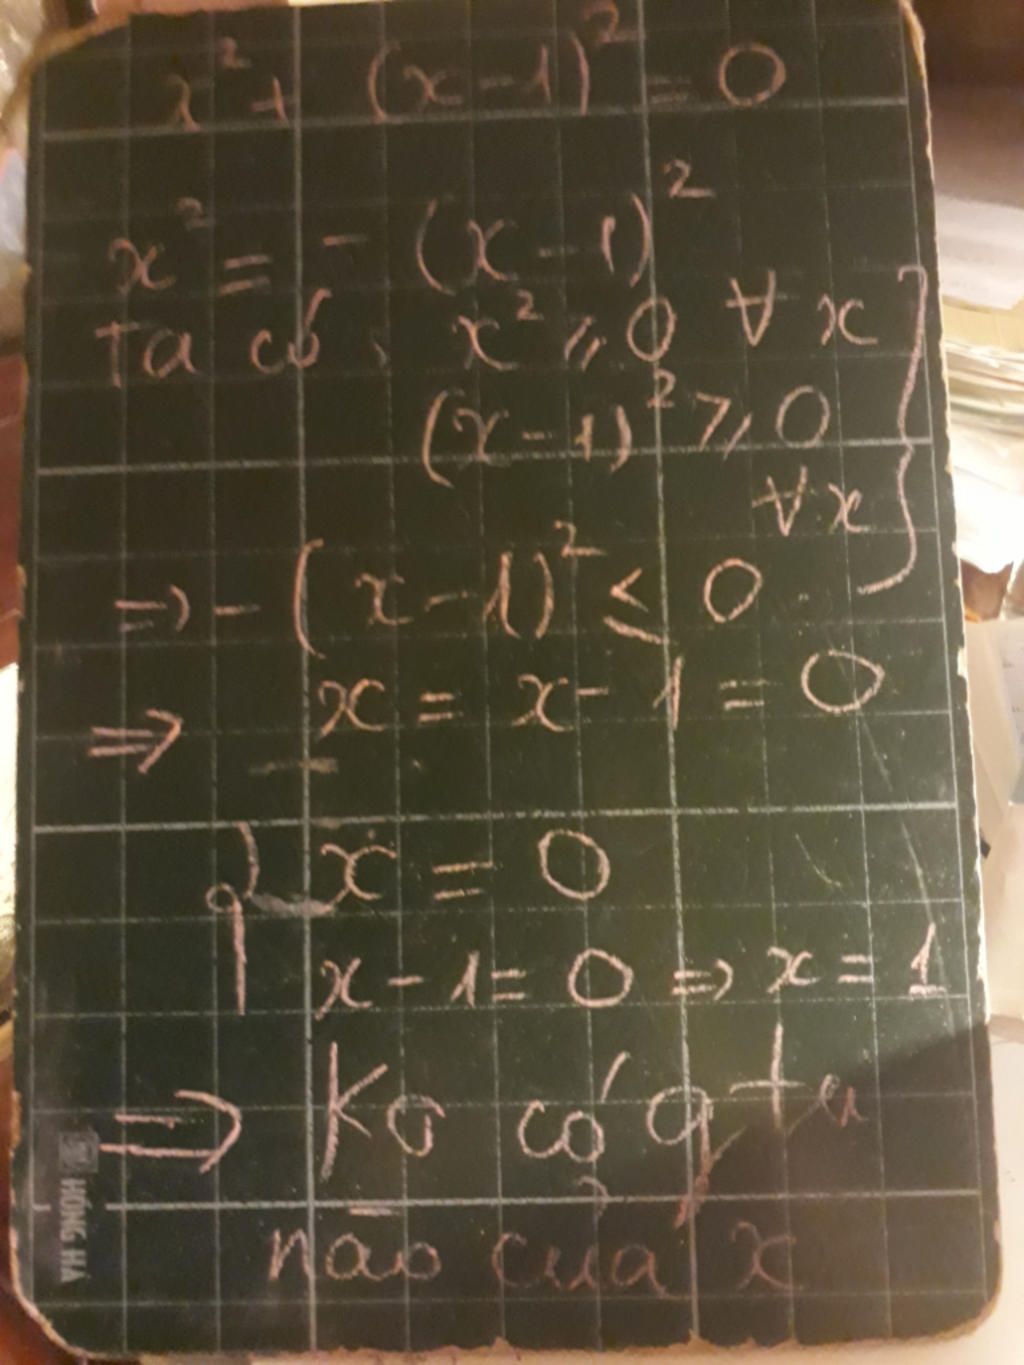 x² + (x-1)² = 0
x² = - (x-1)²
Ta có: x² ⩾ 0 ∀ x
(x-1)² ⩾ 0
∀x
=> - (x-1)² ≤ 0
=> x = x - 1 = 0
x = 0
x - 1 = 0 => x = 1
=> Ko có gtrị
nào của x
HỒNG HÀ